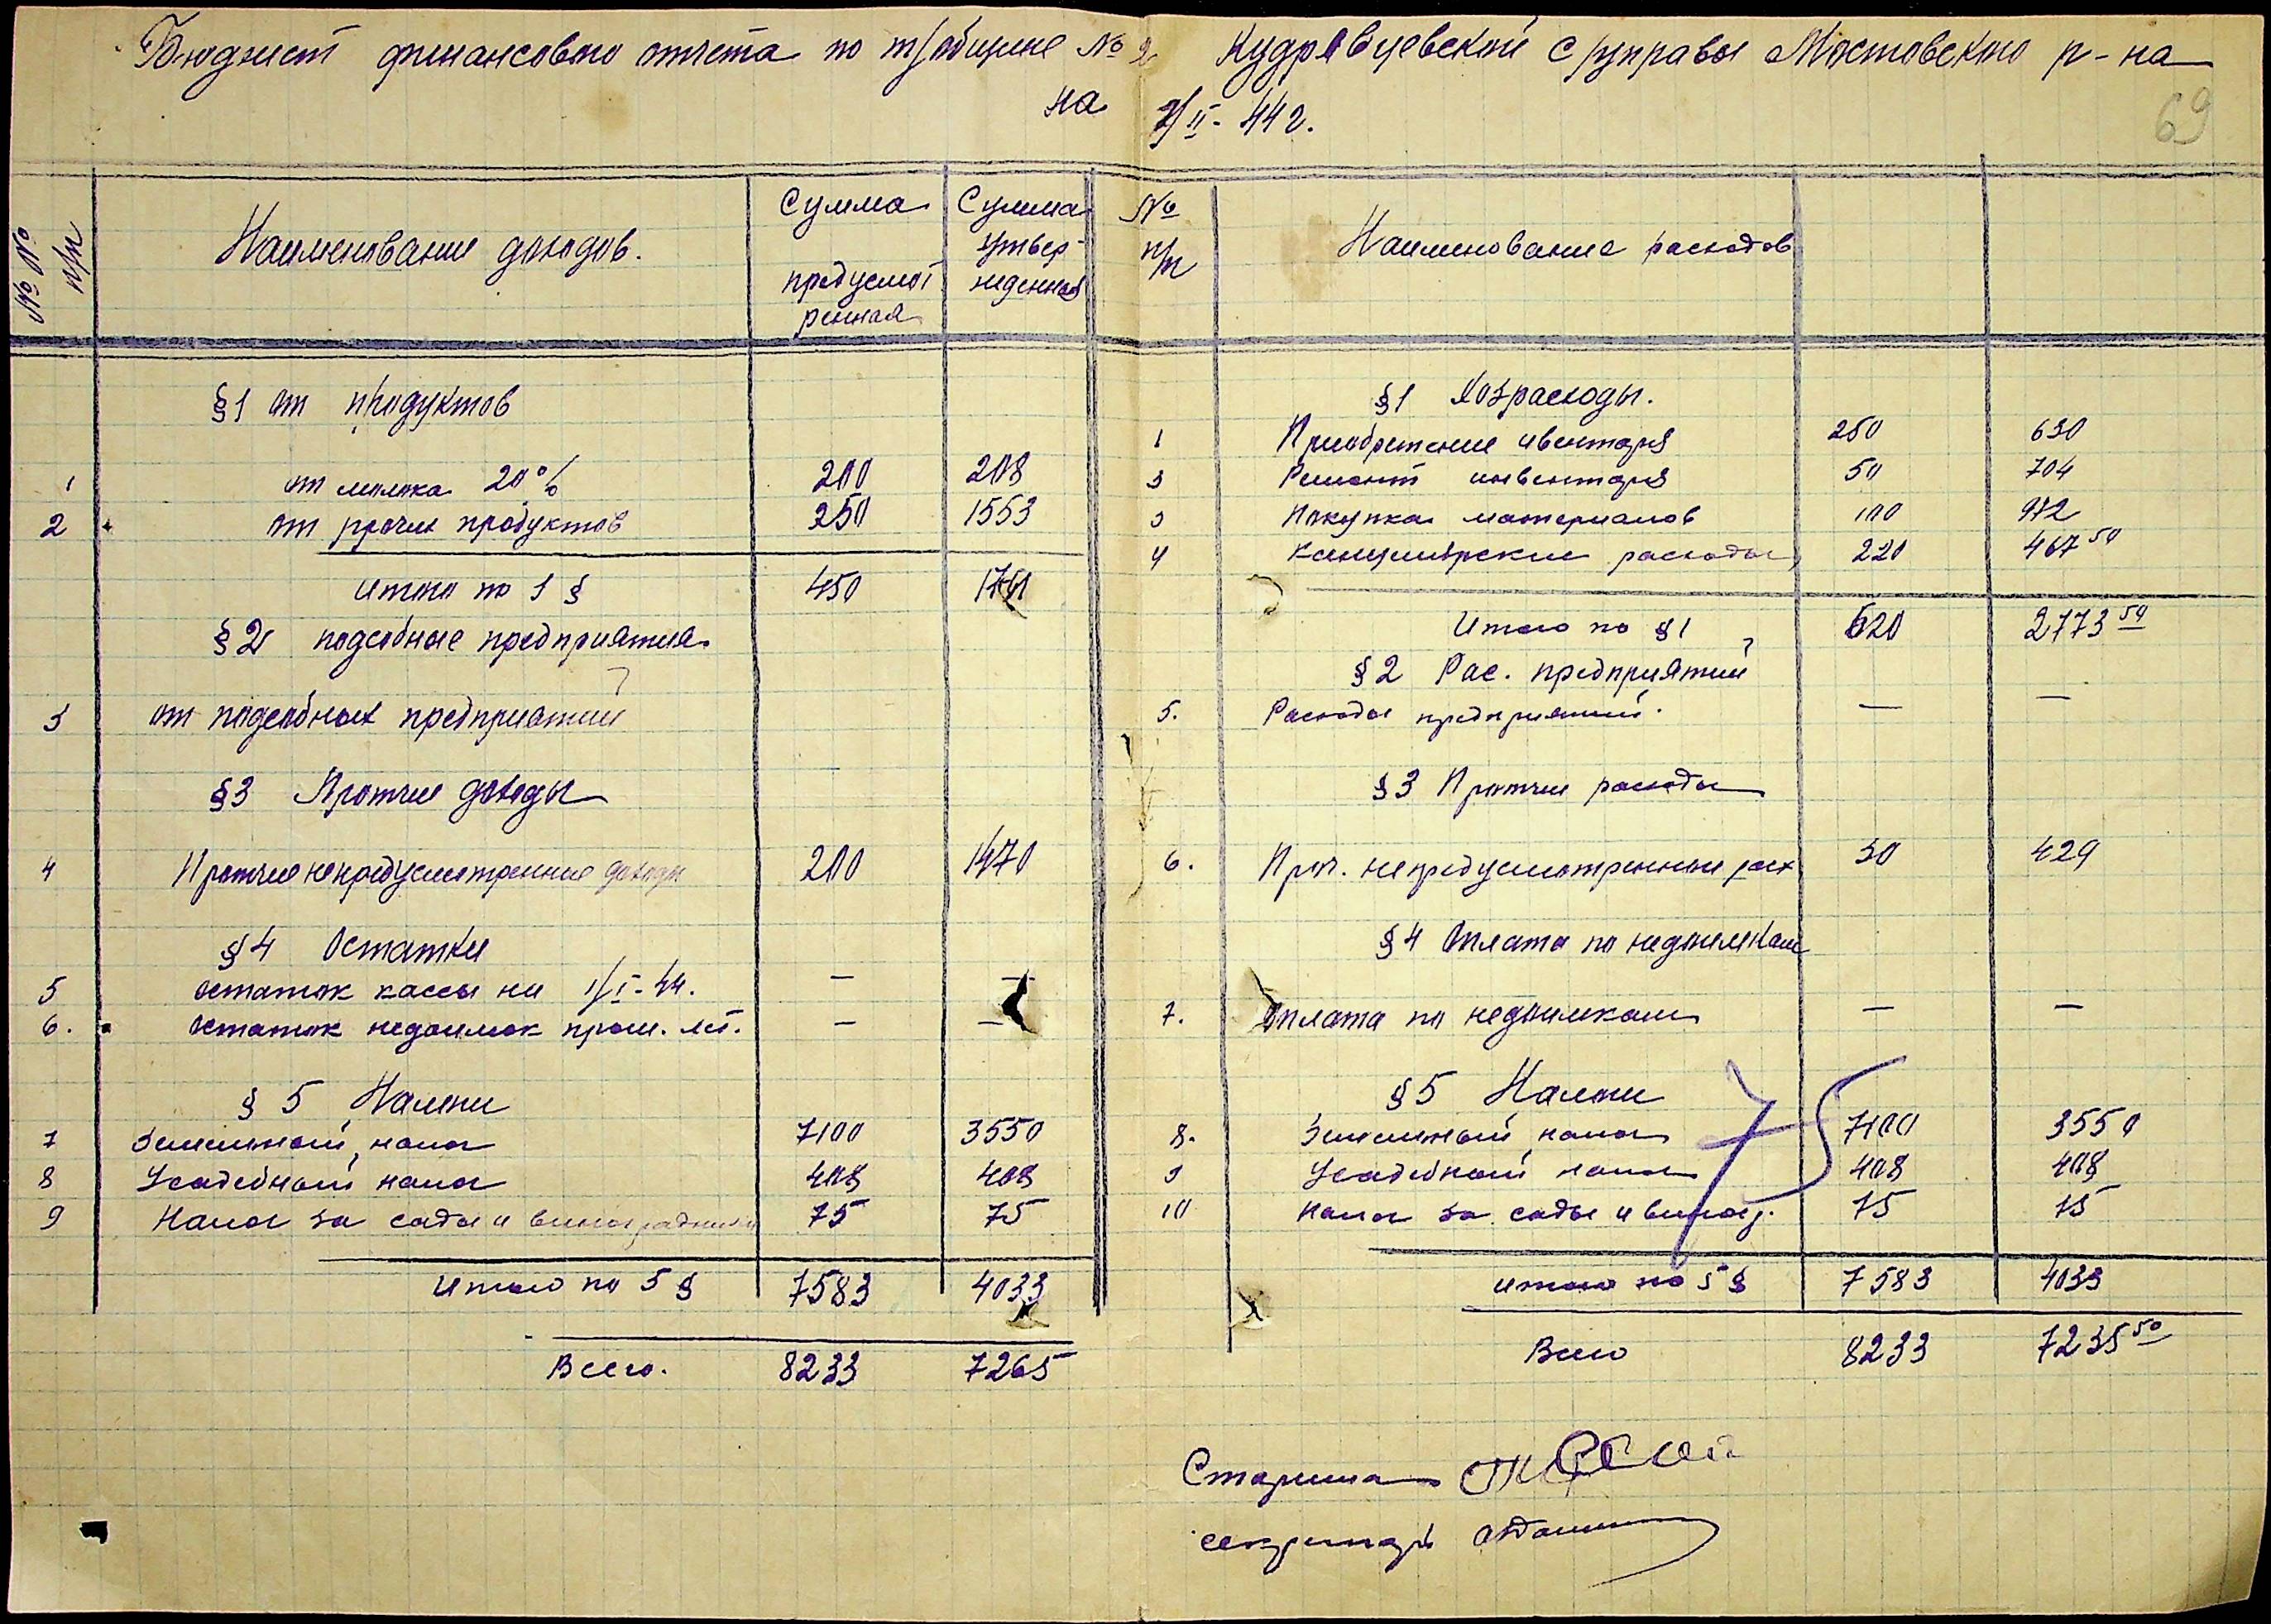 Бюджет финансового отчета по т/общине № 2 Кудрявцевской с/управы Мостовского р-на
на 1/II-44 г.
69
№№ п/п
Наименование доходов.
Сумма предусмотренная
Сумма утвержденная
№ п/п
Наименование расходов
§1 от продуктов
1 от молока 20% 200 208
2 от прочих продуктов 250 1553
Итого по 1 § 450 1761
§2 подсобные предприятия
3 от подсобных предприятий
§3 Протчие доходы
4 Протчие непредусмотренные доходы 200 1470
§4 Остатки
5 Остаток кассы на 1/I-44. — —
6. Остаток недоимок прош. лет. — —
§5 Налоги
7 Земельный налог 7100 3550
8 Усадебный налог 408 408
9 Налог за сады и виноградники 75 75
Итого по 5 § 7583 4033
Всего. 8233 7265
§1 Хозрасходы.
1 Приобретение ивентаря 250 630
3 Ремонт инвентаря 50 704
3 Покупка материалов 100 972
4 Канцелярские расходы 220 467 50
Итого по §1 620 2773 50
§2 Рас. предприятий
5. Расходы предприятий. — —
§3 Протчие расходы
6. Проч. непредусмотренные расх 30 429
§4 Оплата по недоимкам
7. Оплата по недоимкам — —
§5 Налоги
8. Земельный налог 7100 3550
9 Усадебный налог 408 408
10 Налог за сады и виногр. 75 75
75
Итого по 5 § 7583 4033
Всего 8233 7235 50
Старшина
секретарь